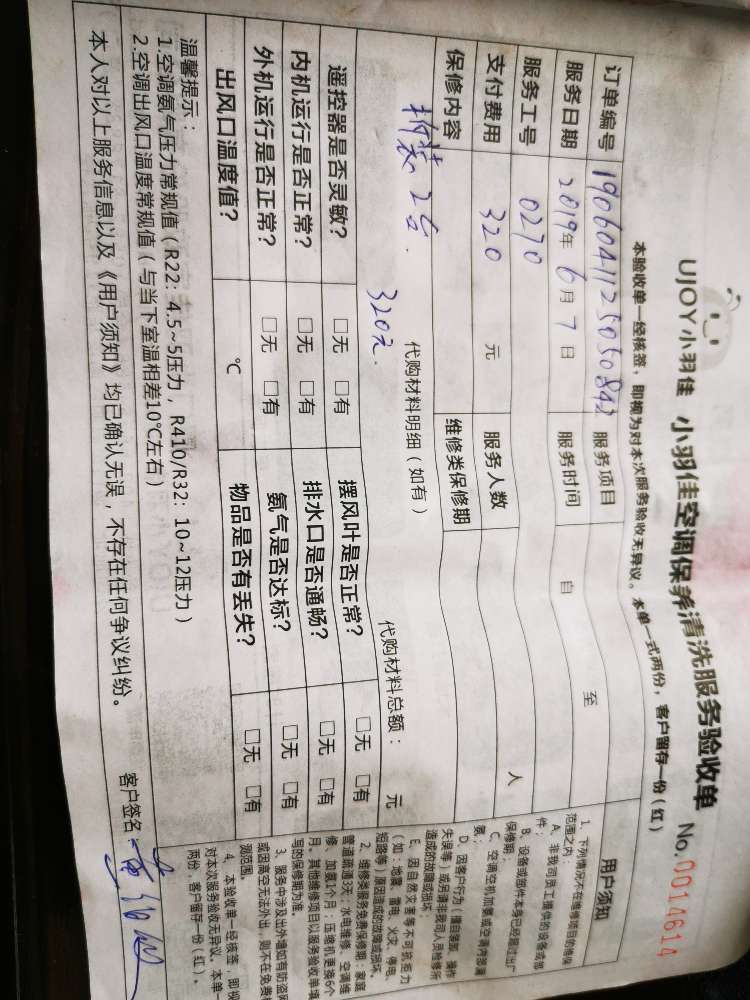 UJOY小羽佳 小羽佳空调保养清洗服务验收单 No.0014614
本验收单一经核签，即视为对本次服务验收无异议。本单一式两份，客户留存一份（红）
订单编号 1906041125050842 服务项目
服务日期 2019年6月7日 服务时间 自 至
服务工号 0270
支付费用 320 元 服务人数 人
保修内容 维修类保修期
拆装2台.
代购材料明细（如有） 代购材料总额： 元
320元.
遥控器是否灵敏？ □无 □有 摆风叶是否正常？ □无 □有
内机运行是否正常？ □无 □有 排水口是否通畅？ □无 □有
外机运行是否正常？ □无 □有 氨气是否达标？ □无 □有
出风口温度值？ ℃ 物品是否有丢失？ □无 □有
温馨提示：
1.空调氨气压力常规值（R22：4.5~5压力，R410/R32：10~12压力）
2.空调出风口温度常规值（与当下室温相差10℃左右）
本人对以上服务信息以及《用户须知》均已确认无误，不存在任何争议纠纷。
客户签名：
用户须知
1、下列情况不在维修项目的维保
范围之内：
A、非我司员工提供的设备或部
件；
B、设备或部件本身已经超过出厂
保修期；
C、空调空机加氨或空调内部漏
氨；
D、因客户行为（擅自装卸、操作
失误等）或另请非我司人员检修所
造成的故障或损坏；
E、因自然灾害等不可抗拒力
（如：地震、雷电、火灾、停电、
短路等）原因造成的故障或损坏。
2、维修类服务免费保修期：家庭
管道疏通3天；水电维修、空调维
修、加氨1个月；压缩机更换6个
月。其他维修项目以服务验收单填
写的保修期为准。
3、服务中涉及出外墙如有防盗网
或因高空无法外出，则不在免费检
测范围。
4、本验收单一经核签，即视
对本次服务验收无异议。本单一
两份，客户留存一份（红）。